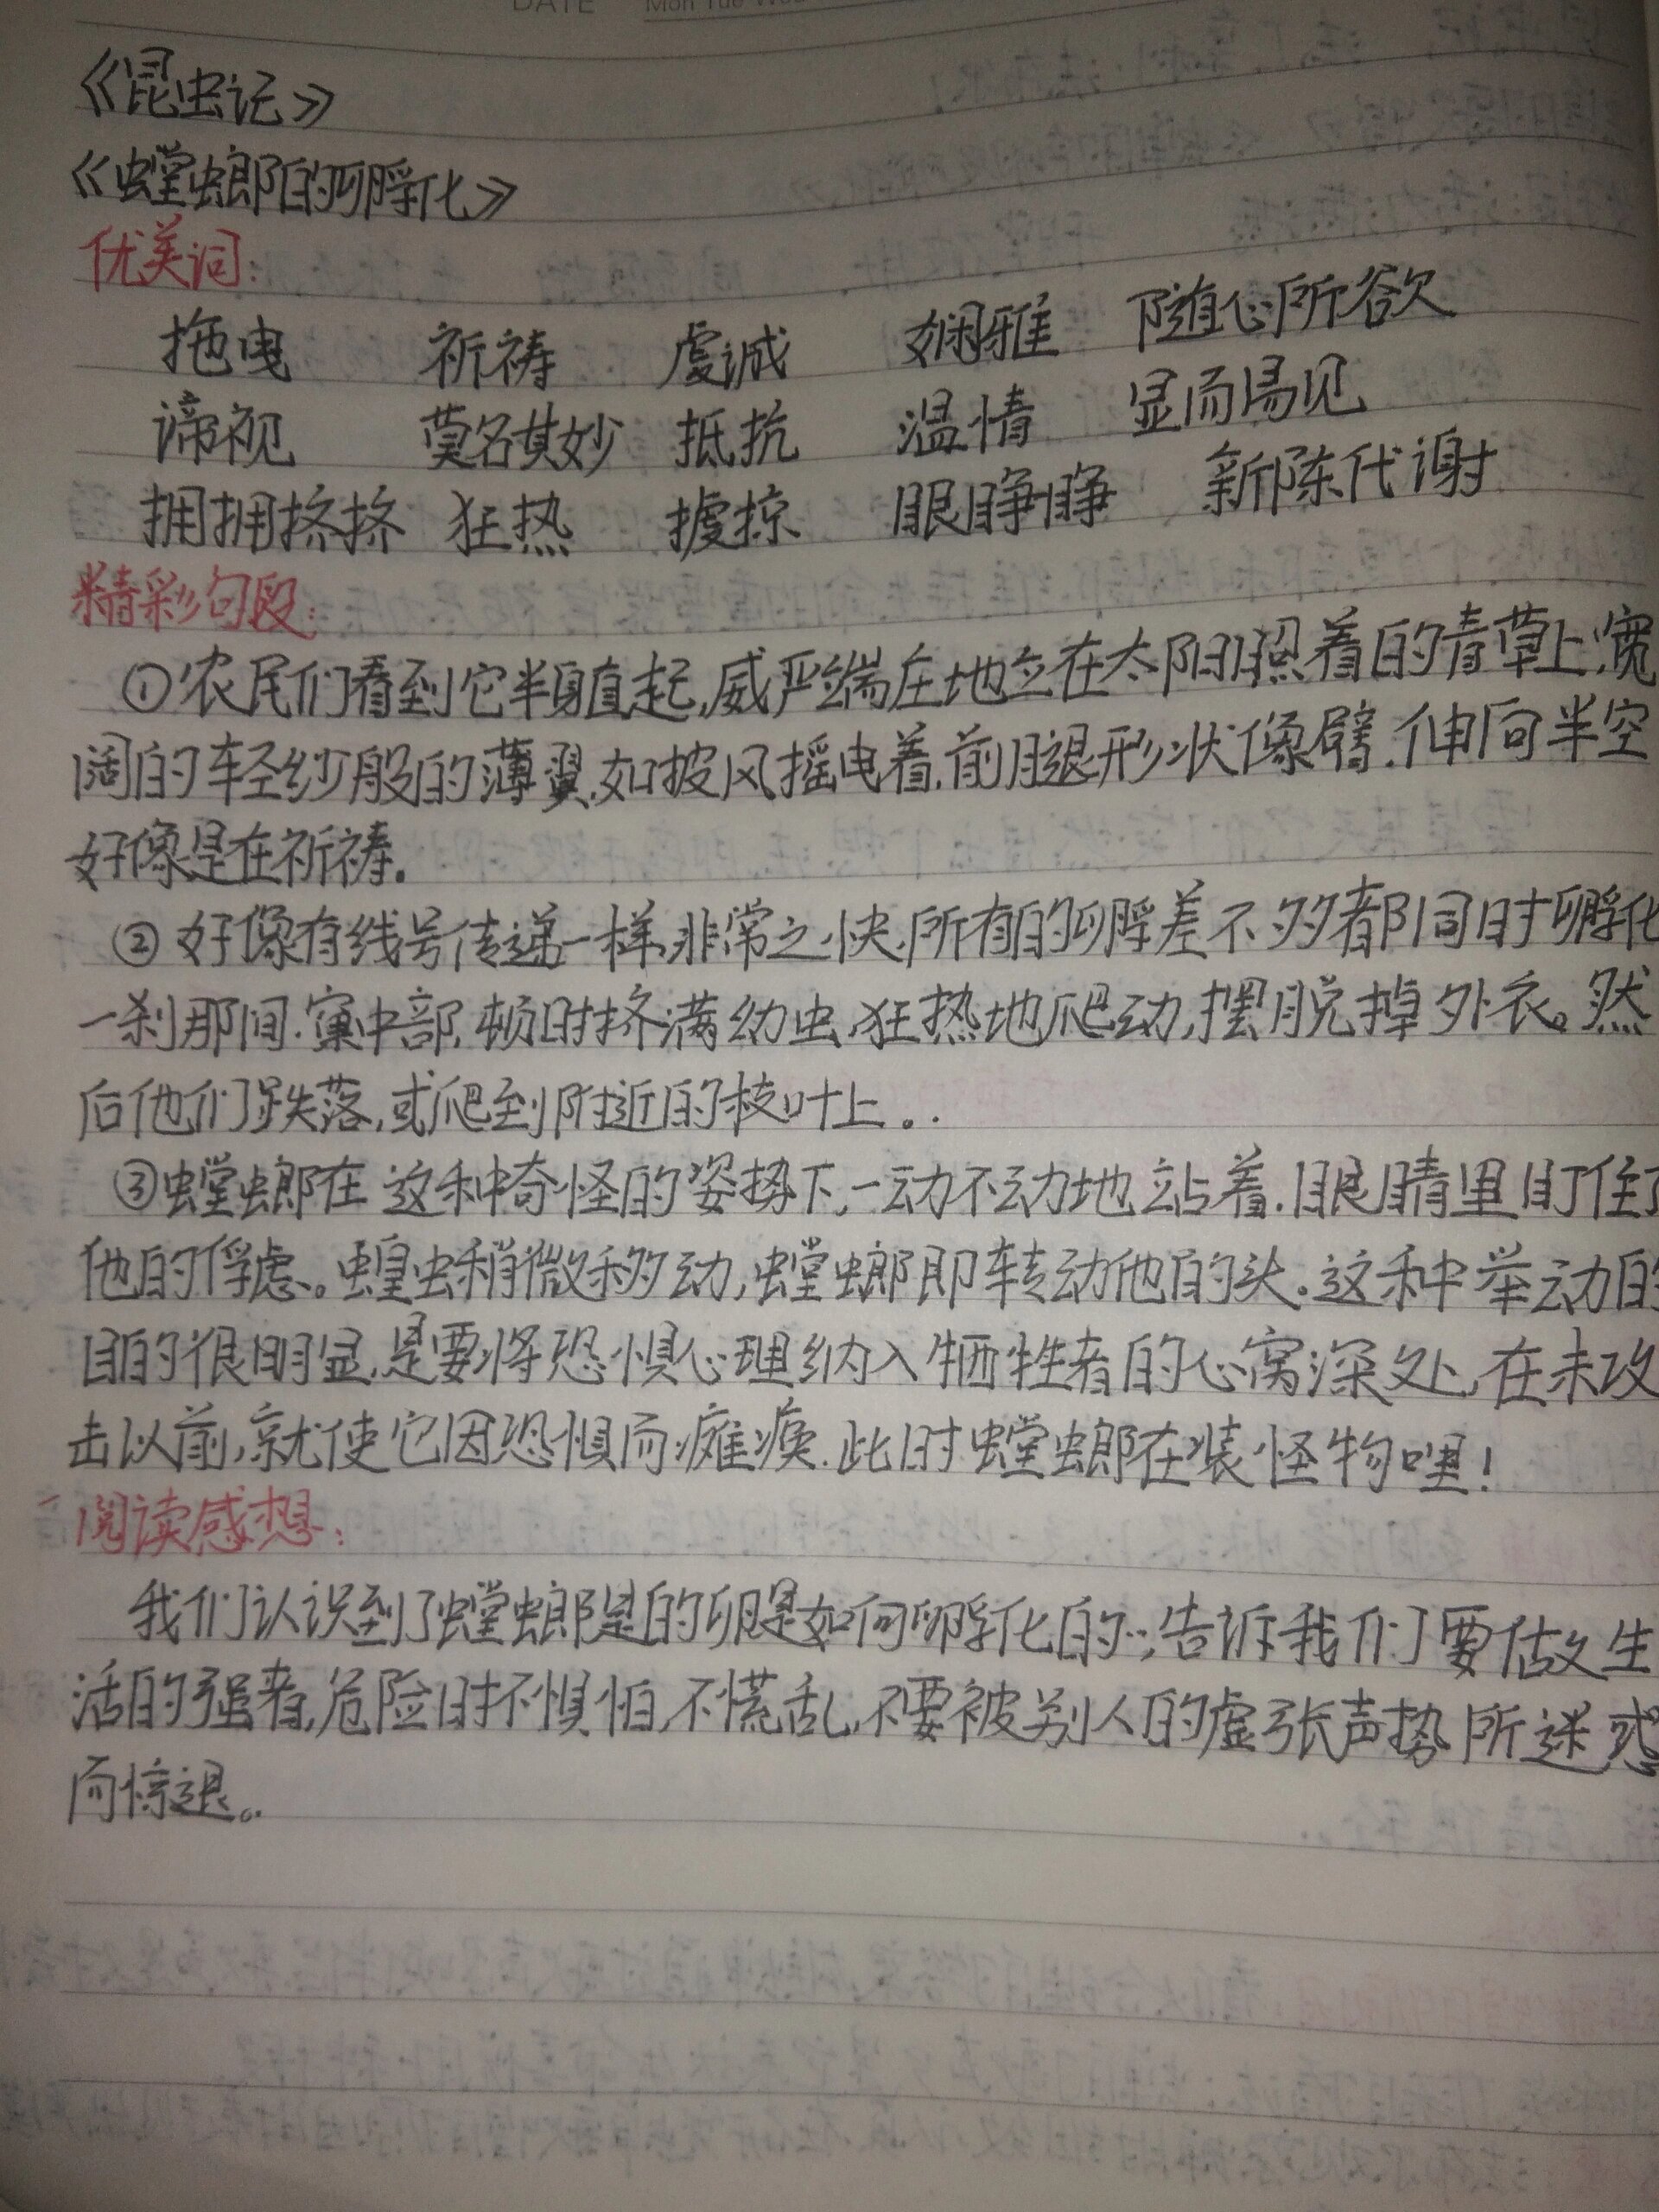 DATE Mon Tue Wed
《昆虫记》
《螳螂的卵孵化》
优美词:
拖曳 祈祷 虔诚 娴雅 随心所欲
谛视 莫名其妙 抵抗 温情 显而易见
拥拥挤挤 狂热 掳掠 眼睁睁 新陈代谢
精彩句段:
①农民们看到它半身直起,威严端庄地立在太阳照着的青草上,宽
阔的轻纱般的薄翼,如披风摇曳着,前腿形状像臂,伸向半空
好像是在祈祷.
②好像有线号传递一样,非常之快,所有的卵孵差不多都同时孵化
一刹那间.窠中部,顿时挤满幼虫,狂热地爬动,摆脱掉外衣。然
后他们跌落,或爬到附近的枝叶上。
③螳螂在这种奇怪的姿势下,一动不动地站着.眼睛里盯住了
他的俘虑。蝗虫稍微移动,螳螂即转动他的头.这种举动的
目的很明显,是要将恐惧心理纳入牺牲者的心窝深处,在未攻
击以前,就使它因恐惧而瘫痪.此时螳螂在装怪物哩!
阅读感想:
我们认识到了螳螂是的卵是如何孵化的;告诉我们要做生
活的强者,危险时不惧怕,不慌乱,不要被别人的虚张声势所迷惑
而惊退。